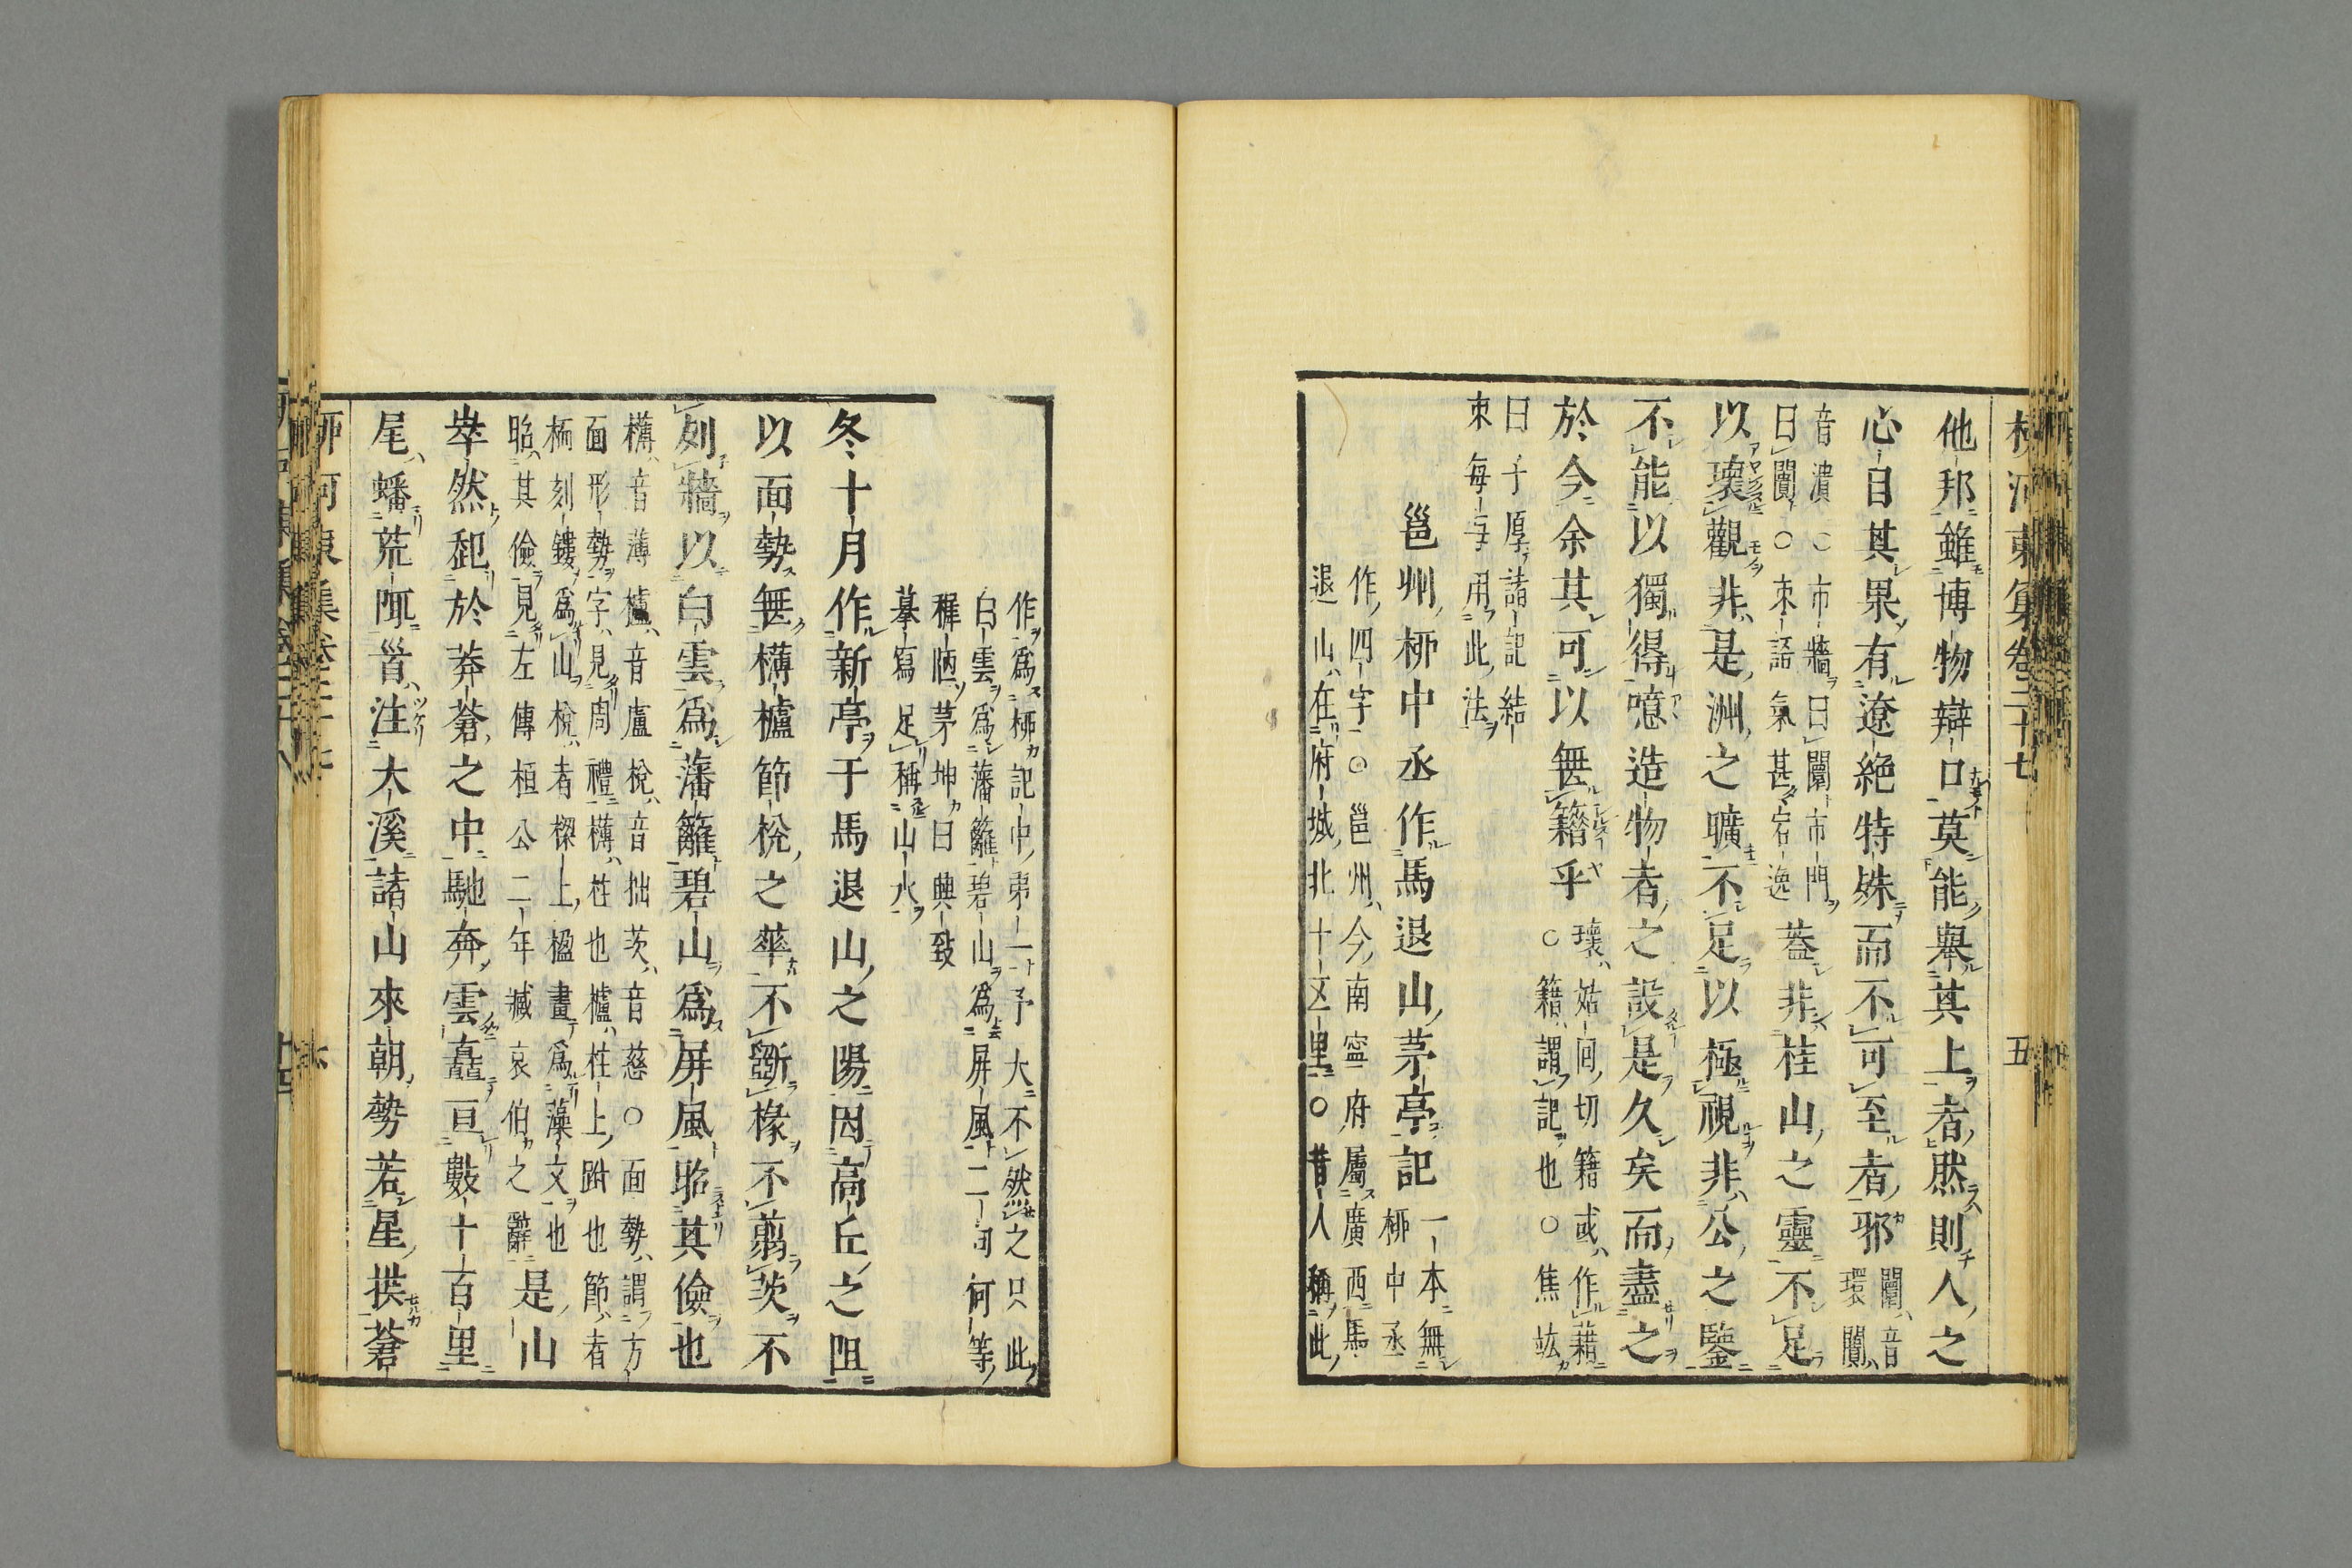 五
他邦雖博物辯口莫能舉其上者然則人之
心目其果有遼絶特殊而不可至者邪闤音
環闠
音潰○市牆曰闤市門
曰闠○束語氣甚宕逸蓋非桂山之靈不足
以瓌觀非是洲之曠不足以極視非公之鑒
不能以獨得噫造物者之設是久矣而盡之
於今余其可以無籍乎瓌姑回切籍或作藉
○籍謂記也○焦竑
曰子厚諸記結
束每每用此法
邕州柳中丞作馬退山茅亭記一本無
柳中丞
作四字○邕州今南寧府屬廣西馬
退山在府城北十五里○昔人稱此
作爲柳記中第一予大不然之只此
白雲爲藩籬碧山爲屏風二句何等
稺陋茅坤曰興致
摹寫足稱山水
冬十月作新亭于馬退山之陽因高丘之阻
以面勢無欂櫨節梲之華不斵椽不翦茨不
列牆以白雲爲藩籬碧山爲屏風昭其儉也
欂音薄櫨音盧梲音拙茨音慈○面勢謂方
面形勢字見周禮欂柱也櫨柱上跗也節者
栭刻鏤爲山梲者樑上楹畫爲藻文也
昭其儉見左傳桓公二年臧哀伯之辭是山
崒然起於莽蒼之中馳奔雲矗亘數十百里
尾蟠荒陬首注大溪諸山來朝勢若星拱蒼